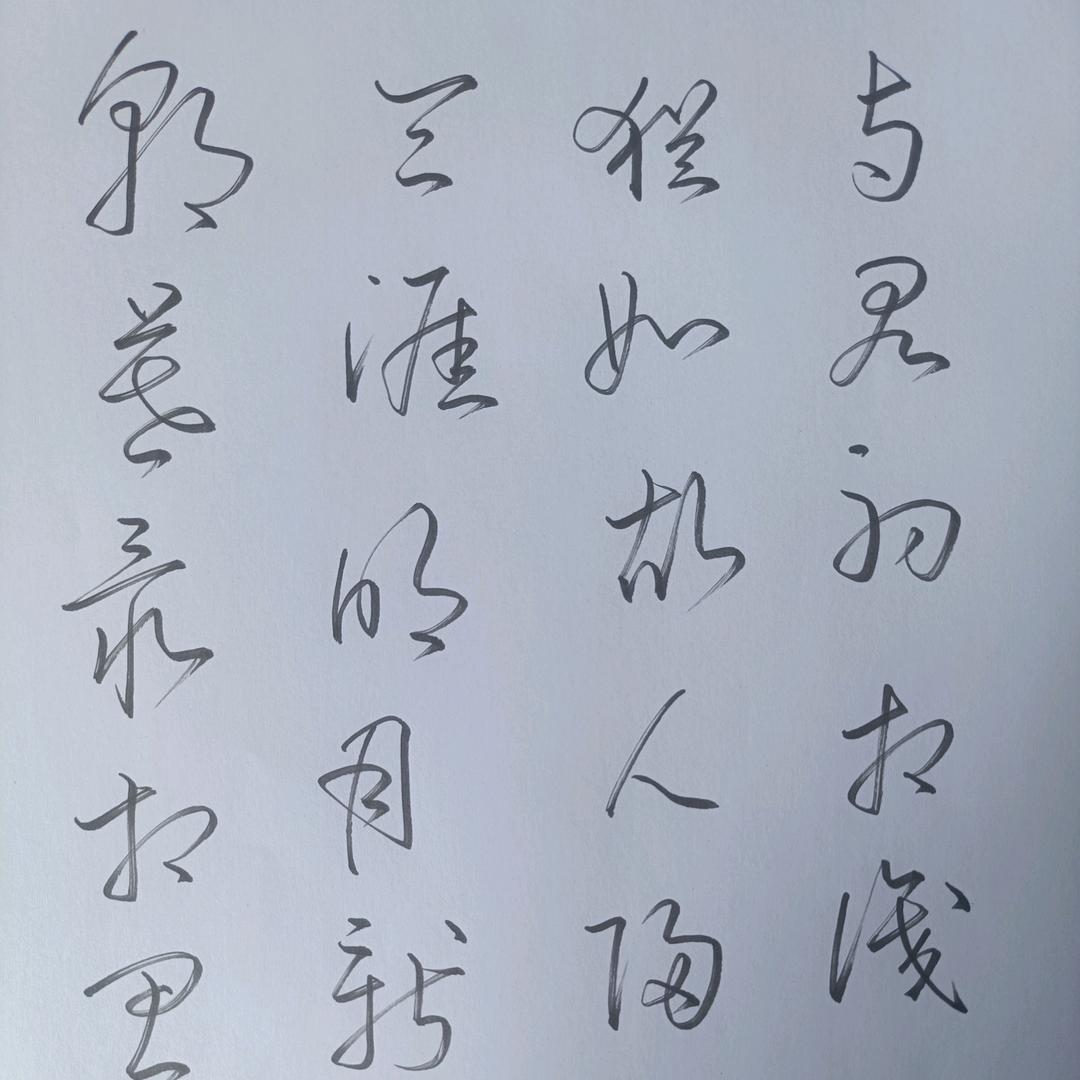 与君初相识
犹如故人归
天涯明月新
朝暮最相思